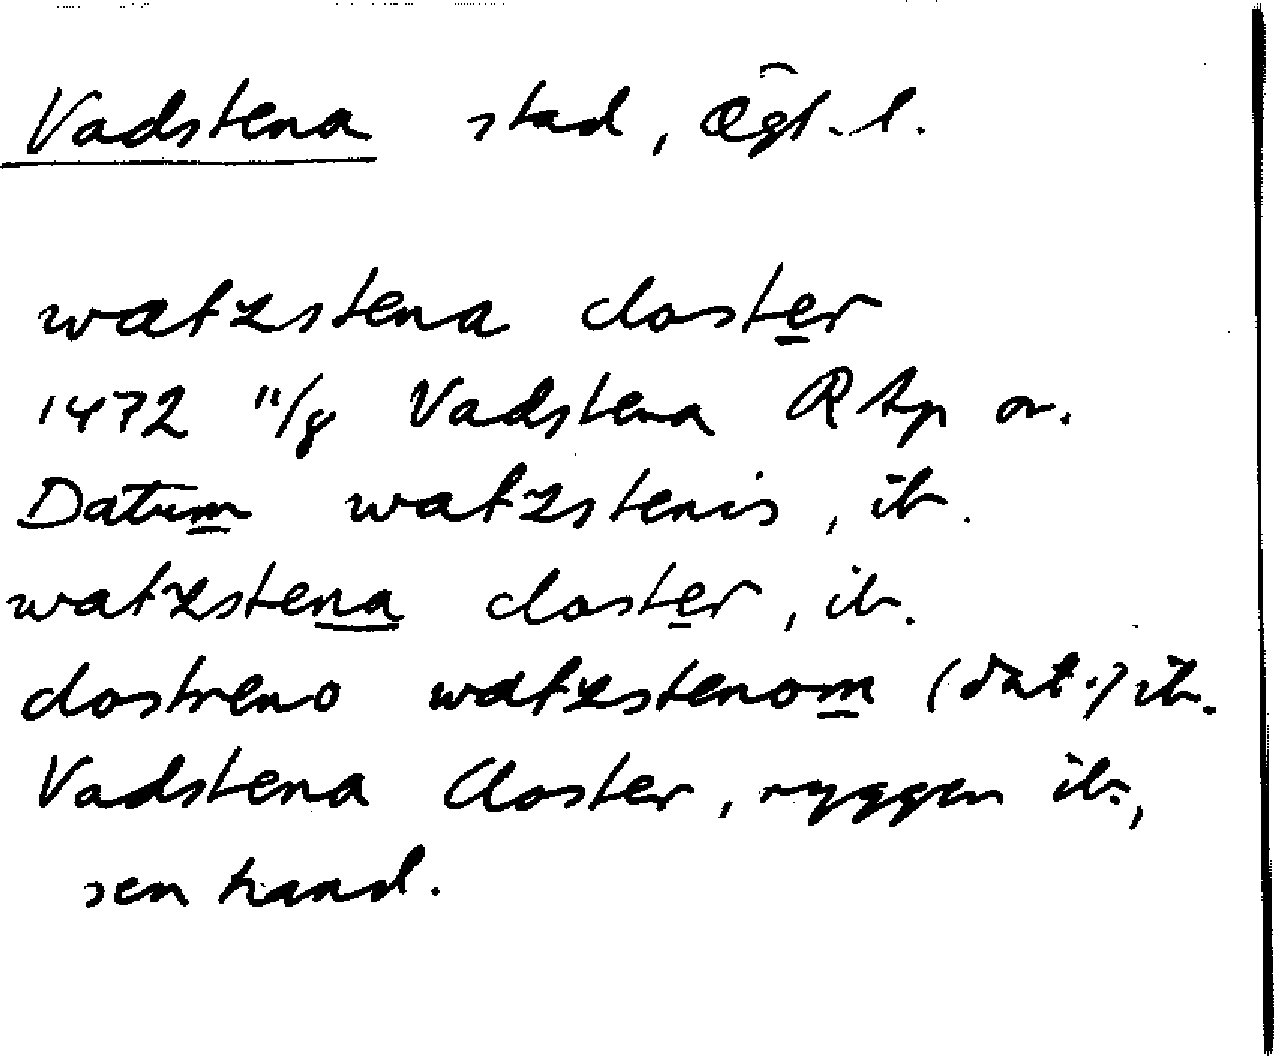 Vadstena stad, Ögl. l.
watzstena closter
1472 11/8 Vadstena RAp or.
Datum watzstenis, ib.
watzstena closter, ib.
clostreno watzstenom (dat.) ib.
Vadstena Closter, ryggen ib.,
sen hand.